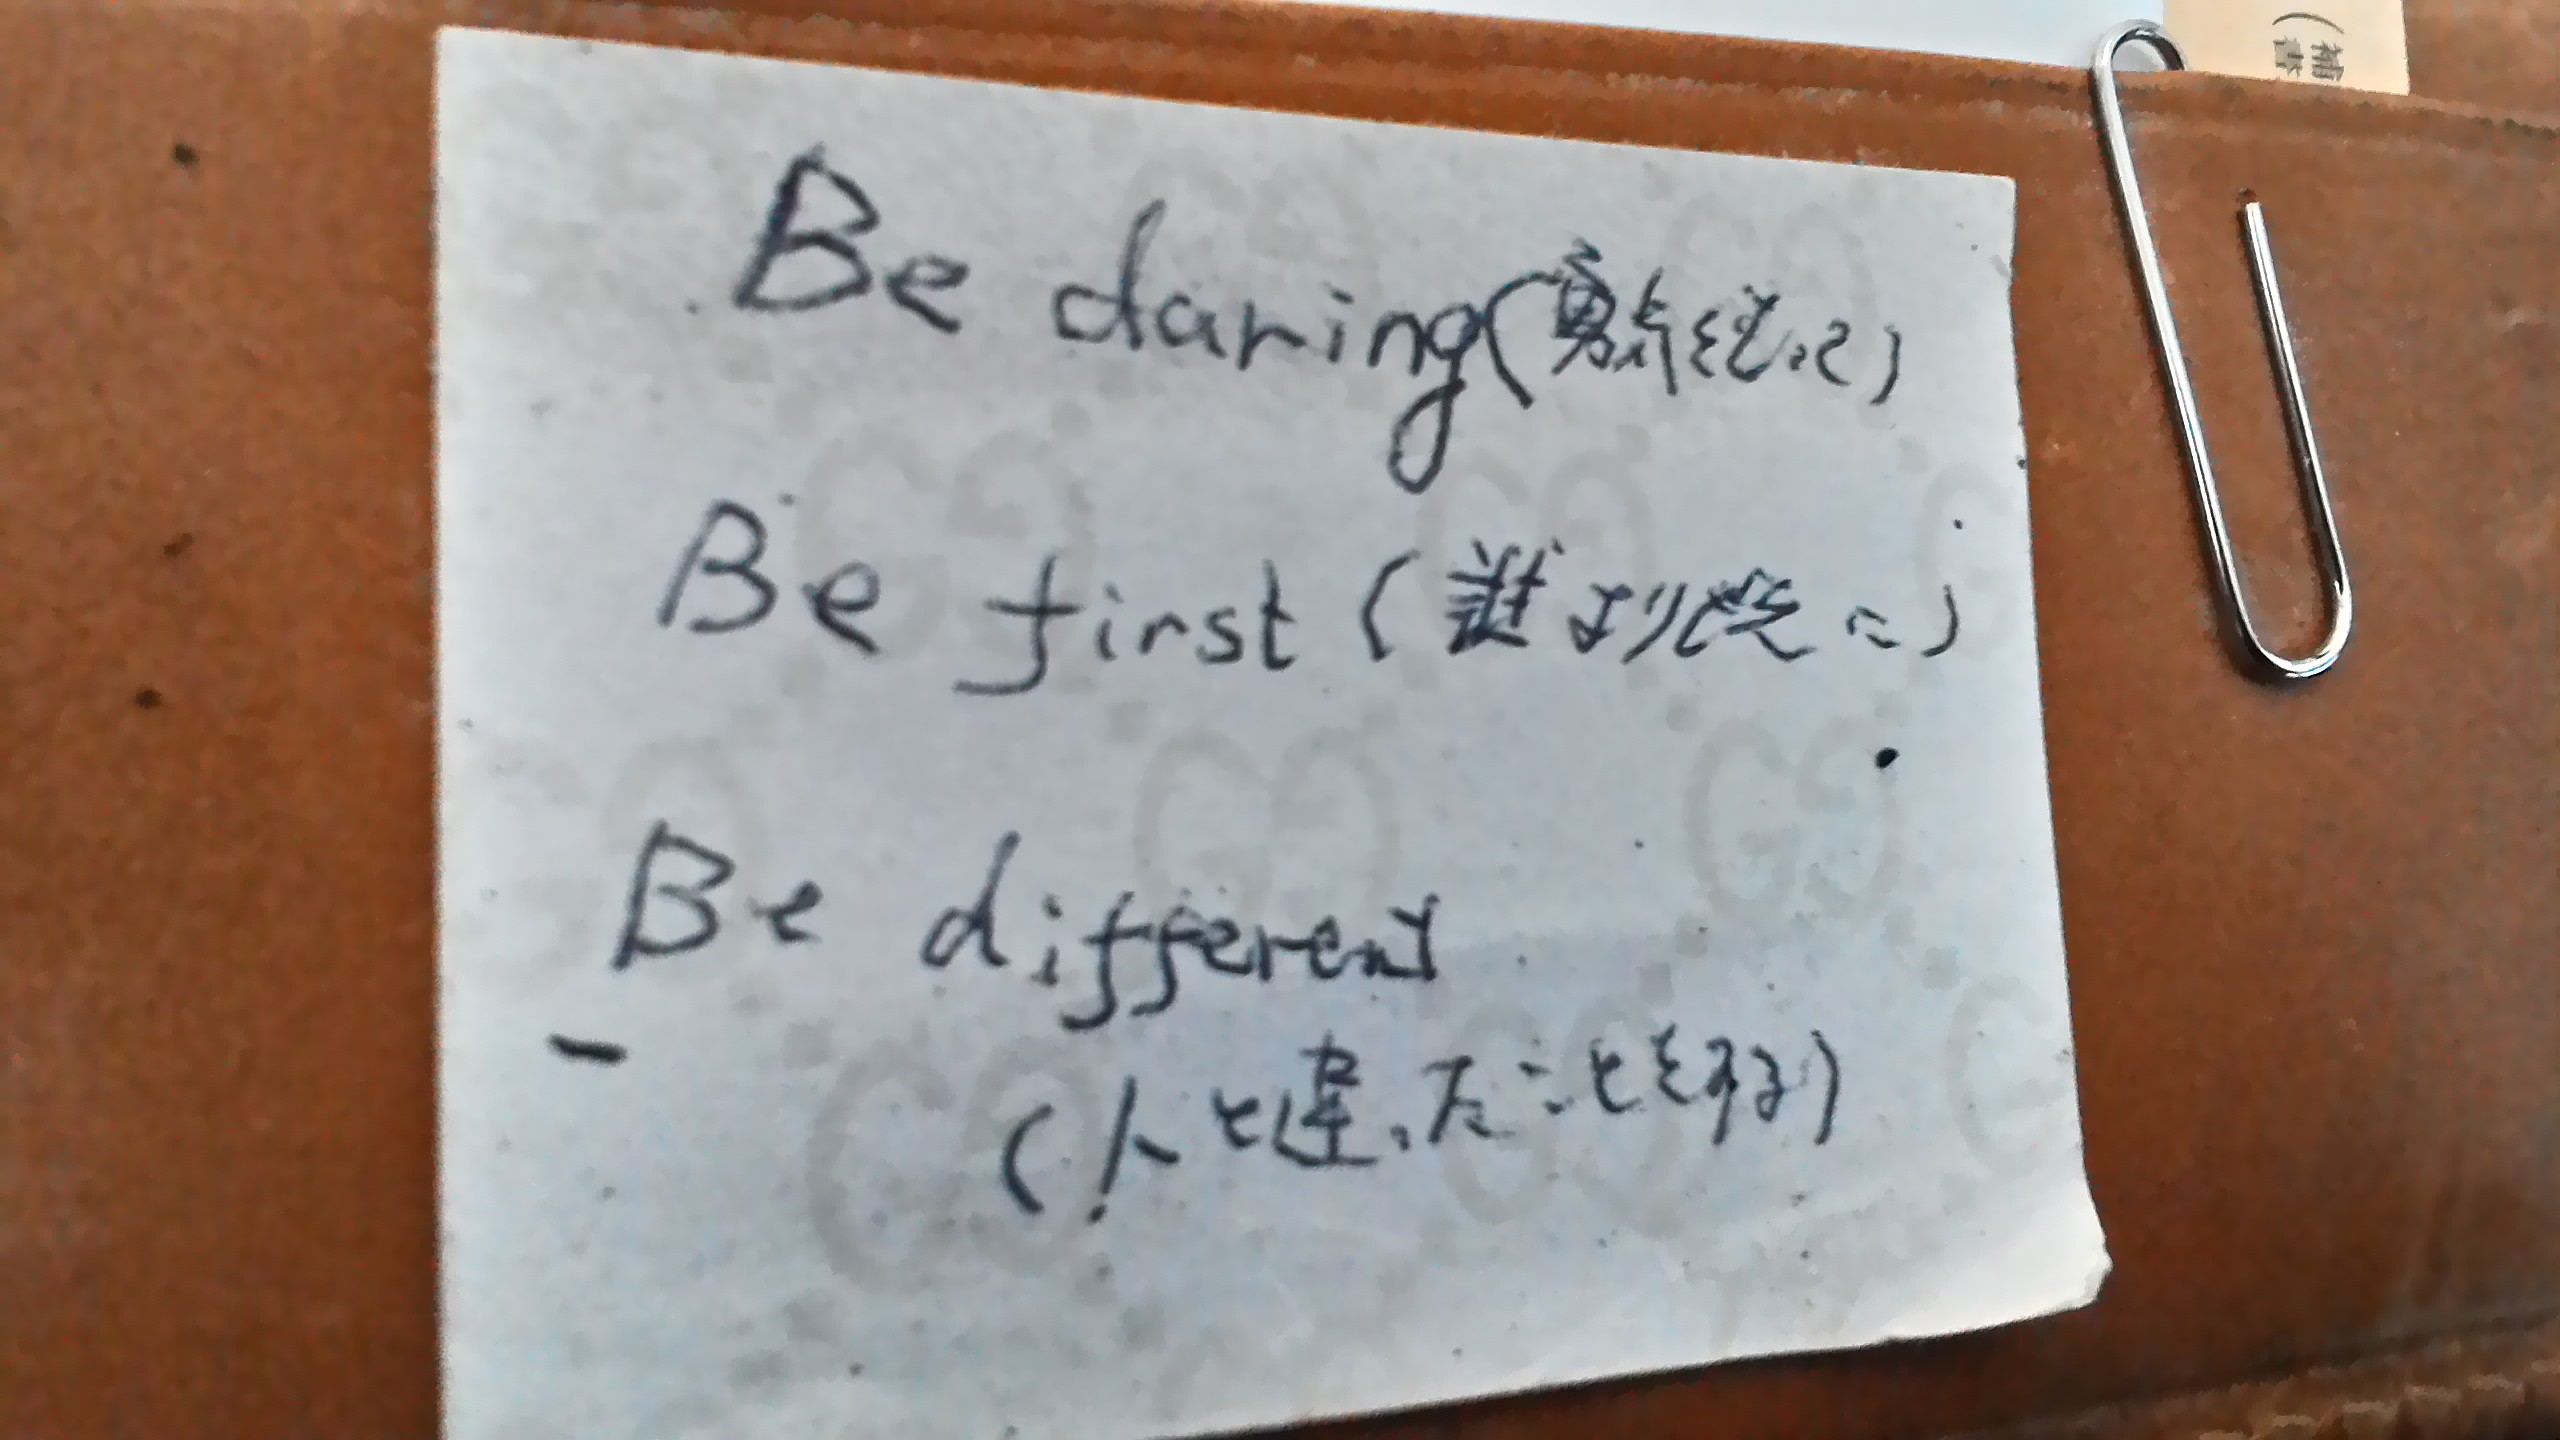 Be daring(勇気をもって)
Be first(誰よりも先に)
Be different
(人と違ったことをする)
(補